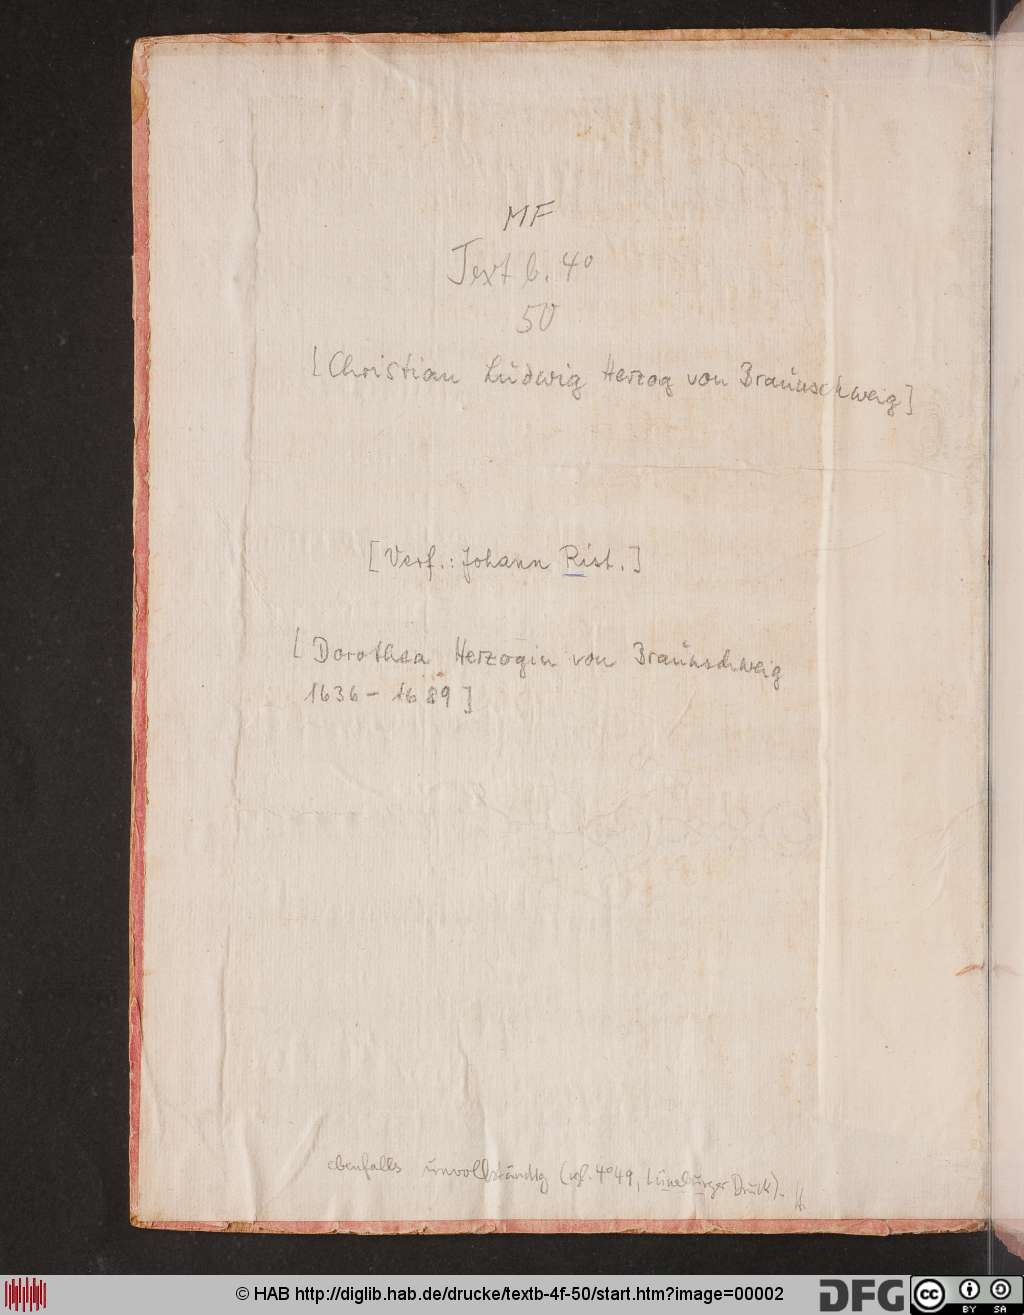 MF
Text b. 4°
50
[Christian Ludwig Herzog von Braunschweig]
[Verf.: Johann Rist.]
[Dorothea Herzogin von Braunschweig
1636 - 1689]
ebenfalls unvollständig (vgl. 4° 49, Lüneburger Druck).
© HAB http://diglib.hab.de/drucke/textb-4f-50/start.htm?image=00002
DFG
cc
BY SA